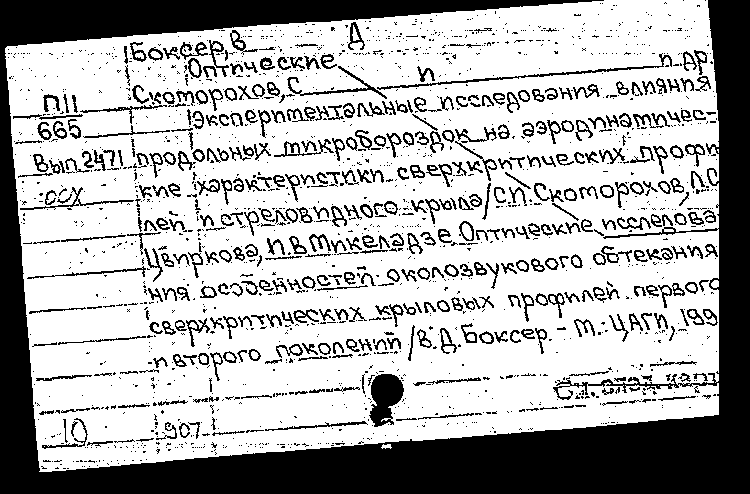 Боксер, В Д
Оптические
П11 Скоморохов, С П и др
665 Экспериментальные исследования влияния
Вып.2471 продольных микробороздок на аэродинамичес-
ОСХ кие характеристики сверхкритических профи
лей и стреловидного крыла/С.П.Скоморохов, Л.С
Цвиркова, И.В.Микеладзе. Оптические исследова
ния особенностей околозвукового обтекания
сверхкритических крыловых профилей первого
и второго поколений /В.Д.Боксер. - М.: ЦАГИ, 199
См. след. карт
10 907